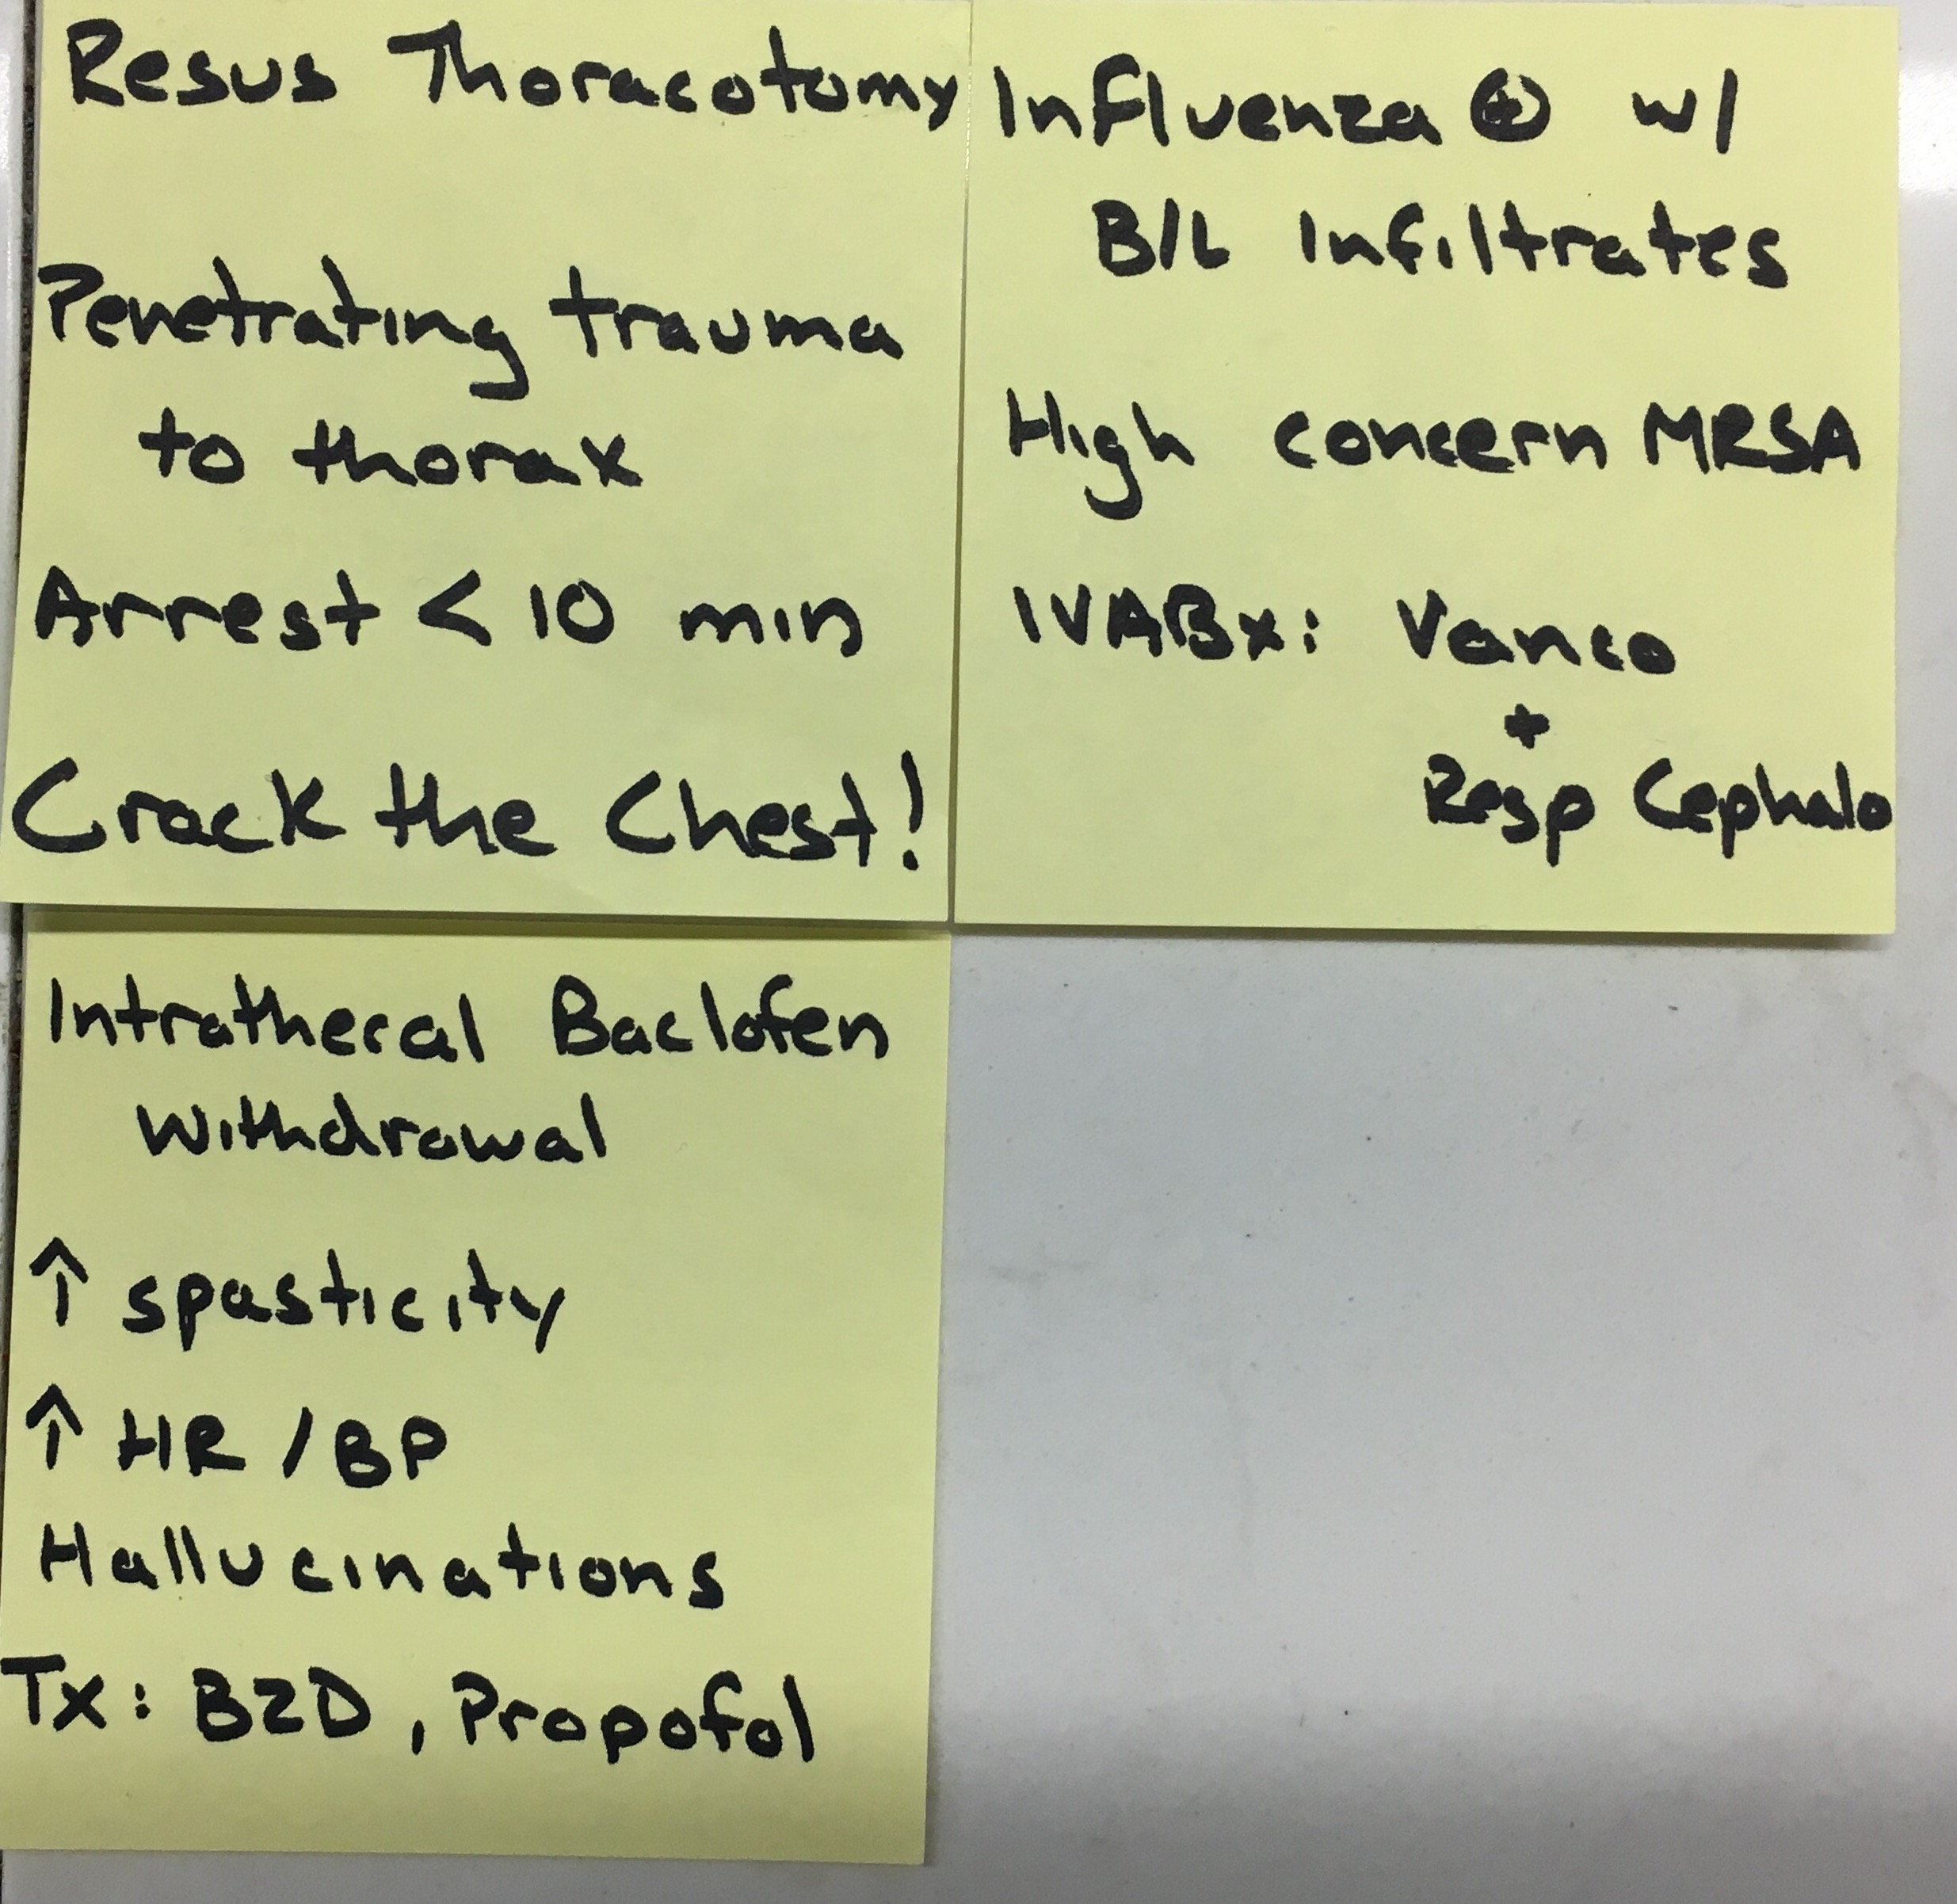 Resus Thoracotomy
Penetrating trauma
to thorax
Arrest < 10 min
Crack the Chest!
Influenza ⊕ w/
B/L Infiltrates
High concern MRSA
IVABx: Vanco
+
Resp Cephalo
Intrathecal Baclofen
Withdrawal
↑ spasticity
↑ HR / BP
Hallucinations
Tx: BZD, Propofol